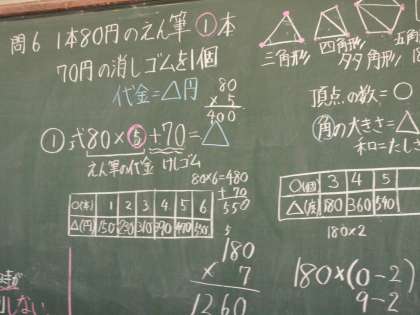 問6 1本80円のえん筆①本
70円の消しゴムを1個
代金=△円
80
× 5
400
① 式80×⑤+70=△
えん筆の代金 けしゴム
80×6=480
+ 70
550
○(本) 1 2 3 4 5 6
△(円) 150 230 310 390 470 550
5
180
× 7
1260
しない
三角形 四角形 五角形
多角形
頂点の数=○
角の大きさ=△
和=たし
○(個) 3 4 5
△(度) 180 360 540
180×2
180×(○-2)
9-2